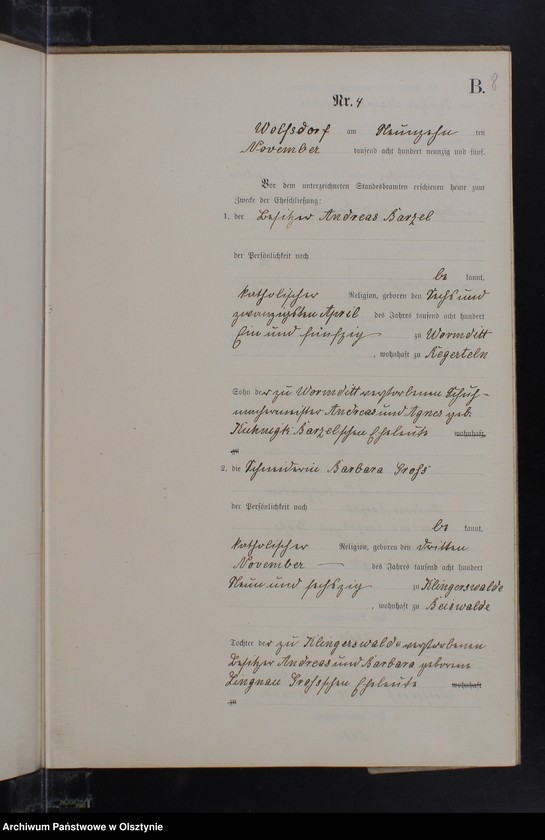 B. 8
Nr. 4
Wolfsdorf am Neunzehn ten
November tausend acht hundert neunzig und fünf.
Vor dem unterzeichneten Standesbeamten erschienen heute zum
Zwecke der Eheschließung:
1. der Besitzer Andreas Barzel
der Persönlichkeit nach
be kannt,
katholischer Religion, geboren den Sechs und
zwanzigsten April des Jahres tausend acht hundert
Ein und fünfzig zu Wormditt
, wohnhaft zu Regerteln
Sohn der zu Wormditt verstorbenen Schuh-
machermeister Andreas und Agnes geb.
Barzelschen Eheleute wohnhaft
zu
2. die Schneiderin Barbara Grohs
der Persönlichkeit nach
be kannt,
katholischer Religion, geboren den dritten
November des Jahres tausend acht hundert
Neun und sechszig zu Klingerswalde
, wohnhaft zu Beiswalde
Tochter der zu Klingerswalde verstorbenen
Besitzer Andreas und Barbara geborene
Lingnau Grohsschen Eheleute wohnhaft
zu
Archiwum Państwowe w Olsztynie